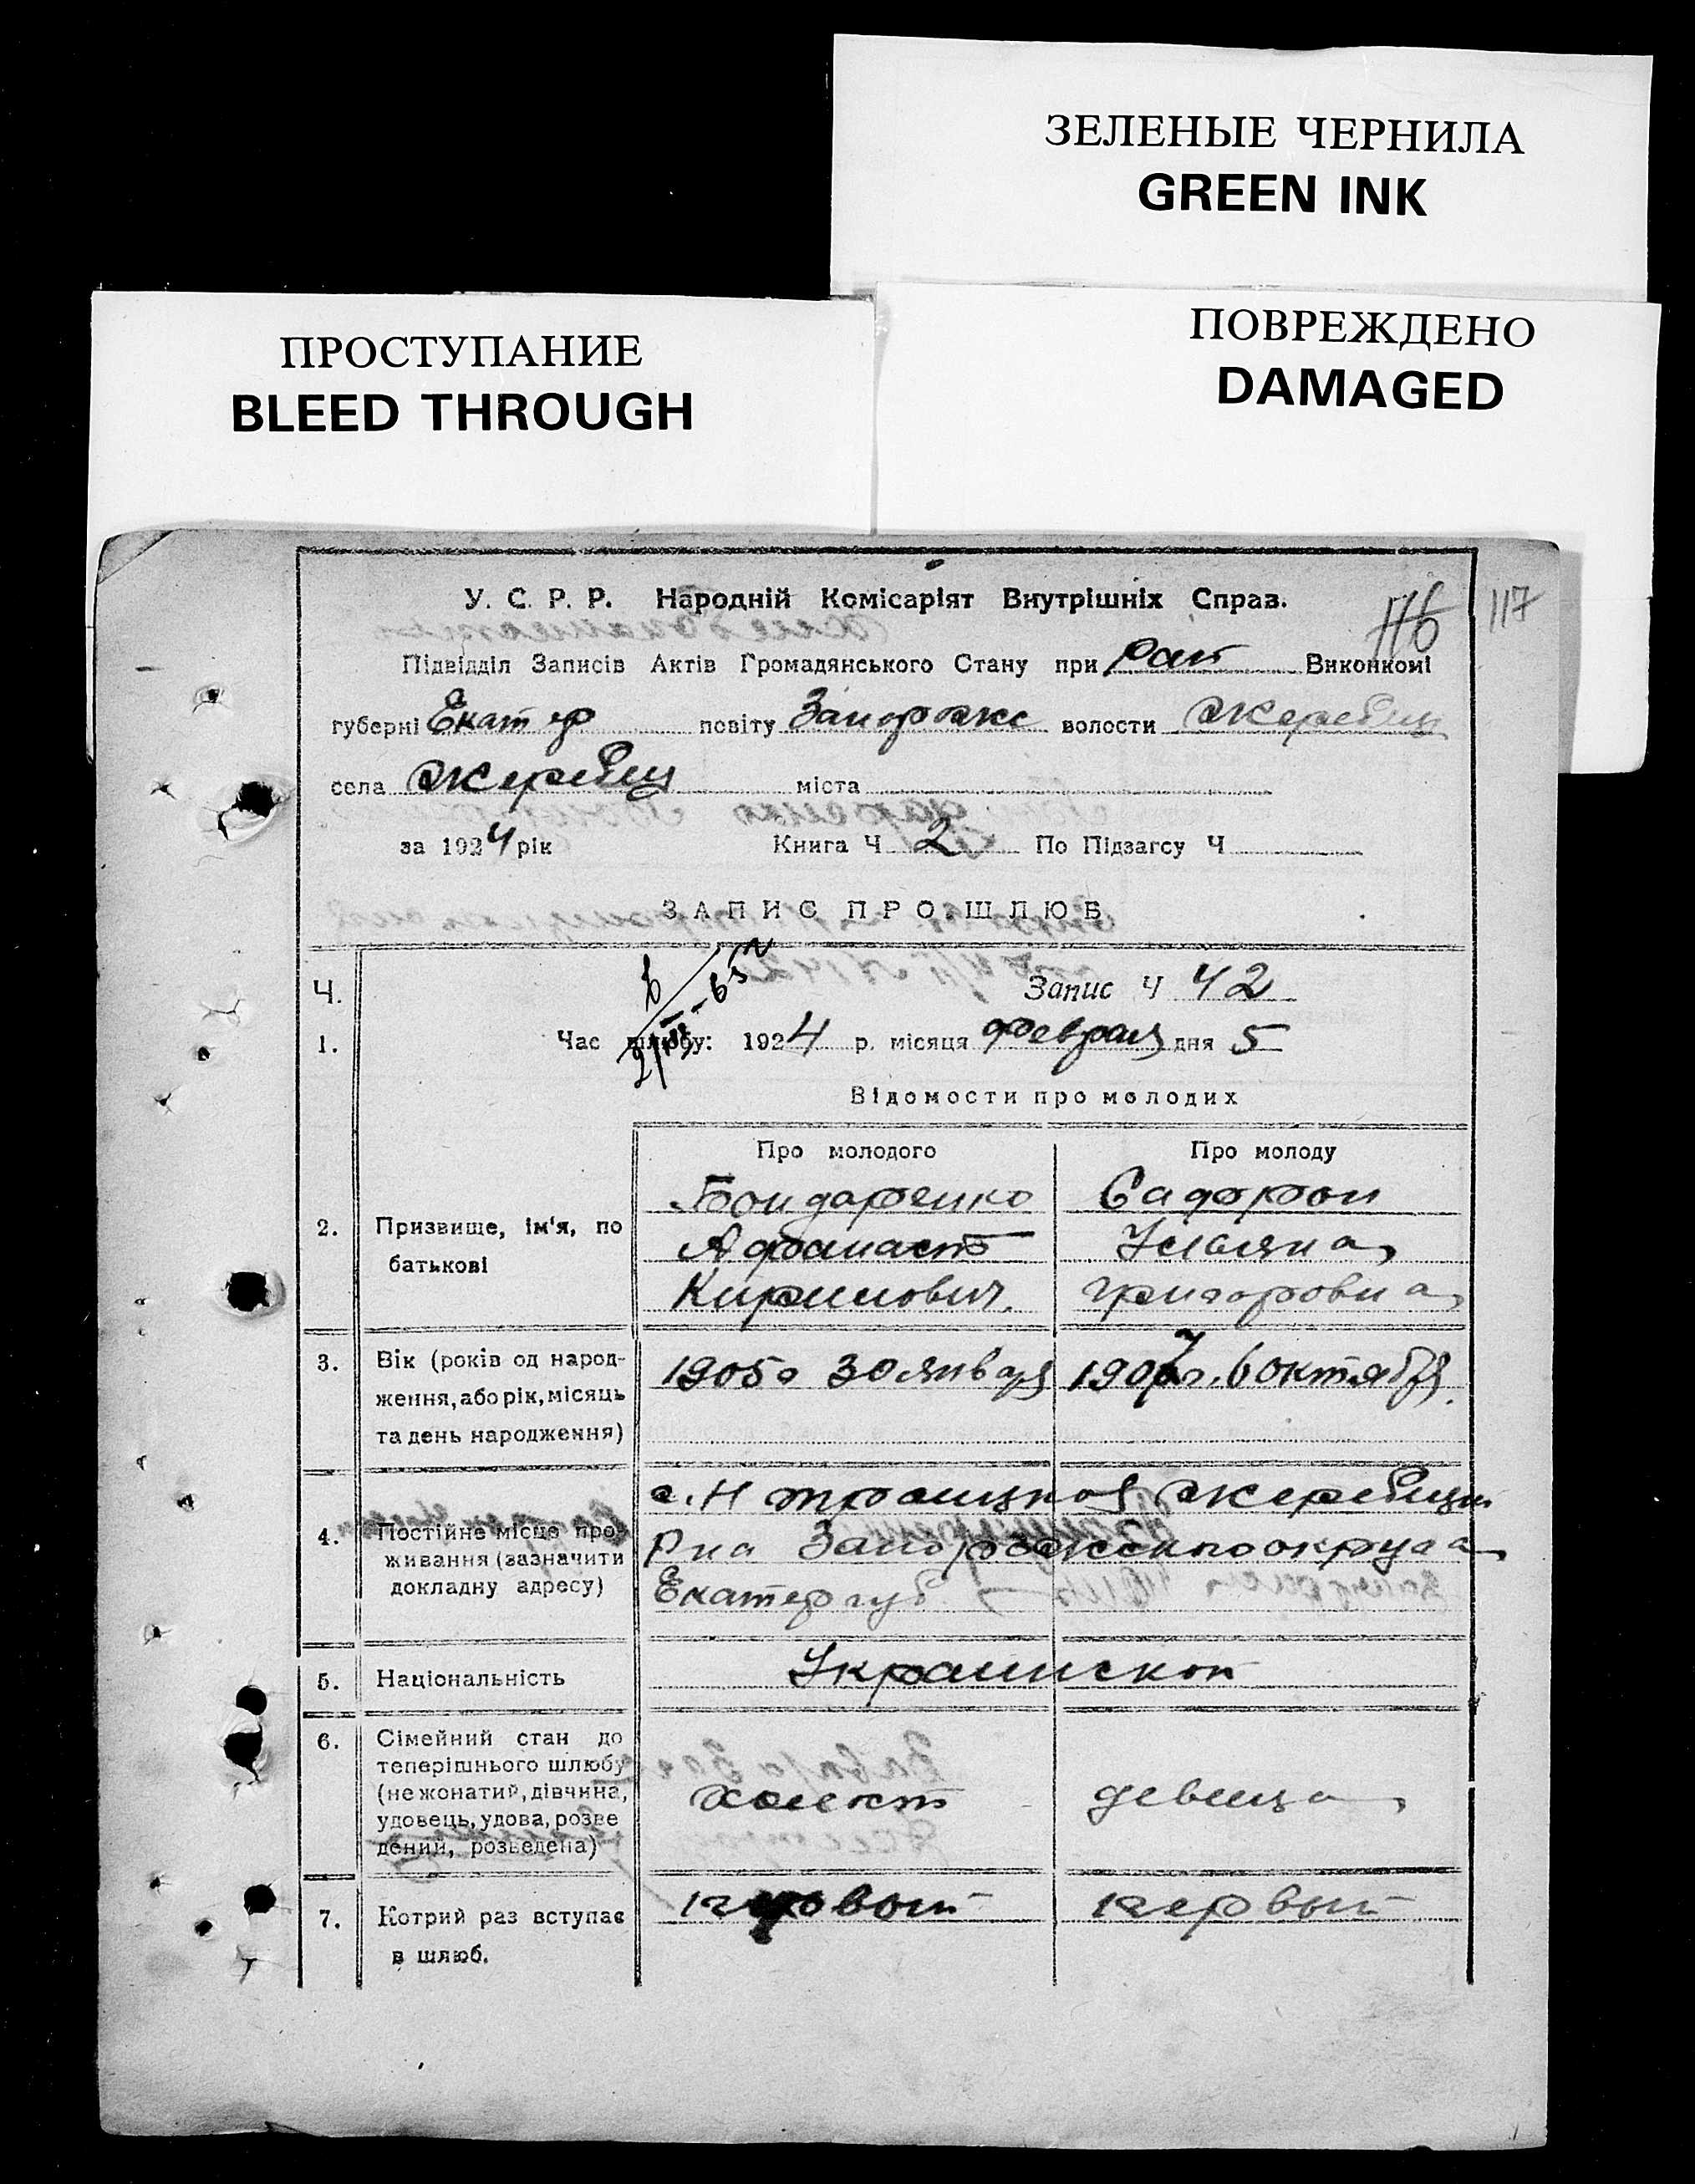 ЗЕЛЕНЫЕ ЧЕРНИЛА
GREEN INK
ПРОСТУПАНИЕ
BLEED THROUGH
ПОВРЕЖДЕНО
DAMAGED
У. С. Р. Р. Народній Комісаріят Внутрішніх Справ.
116 117
Підвідділ Записів Актів Громадянського Стану при Рай Виконкомі
губерні Екатер повіту Запорожс волости Жеребец
села Жеребец міста
за 1924 рік Книга Ч 2 По Підзагсу Ч
ЗАПИС ПРО ШЛЮБ
Ч. Запис Ч 42
1. Час шлюбу: 1924 р. місяця февраля дня 5
Відомости про молодих
Про молодого Про молоду
Бондаренко Сафрон
2. Призвище, ім'я, по батькові
Афанасий Ульяна
Кирилович. Григоровна
3. Вік (років од народ-
ження, або рік, місяць
та день народження)
1905 г 30 января 1907 г. 6 октября.
с. Н Троицкое Жеребецк
4. Постійне місце про-
живання (зазначити
докладну адресу)
Р на Запорожского округа
Екатер губ.
5. Національність Украинской
6. Сімейний стан до
теперішнього шлюбу
(не жонатий, дівчина,
удовець, удова, розве
дений, розведена)
холост девица
7. Котрий раз вступає
в шлюб.
первый первый